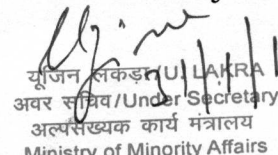 यूजिन लकड़ा/U LAKRA
अवर सचिव/Under Secretary
अल्पसंख्यक कार्य मंत्रालय
Ministry of Minority Affairs